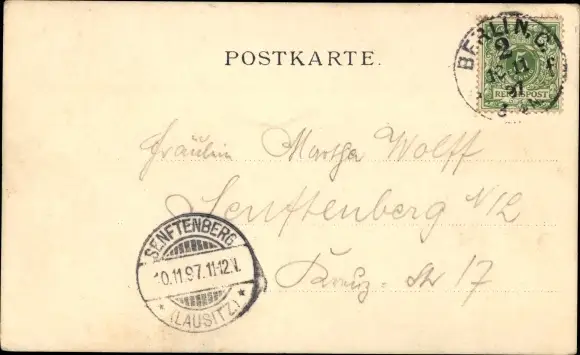 POSTKARTE.
BERLIN. C.
2
11
97
5
REICHSPOST
Fräulein Martha Wolff
Senftenberg N/L
Kreuz-Str 17
SENFTENBERG
10.11.97.11-12.V.
* (LAUSITZ) *